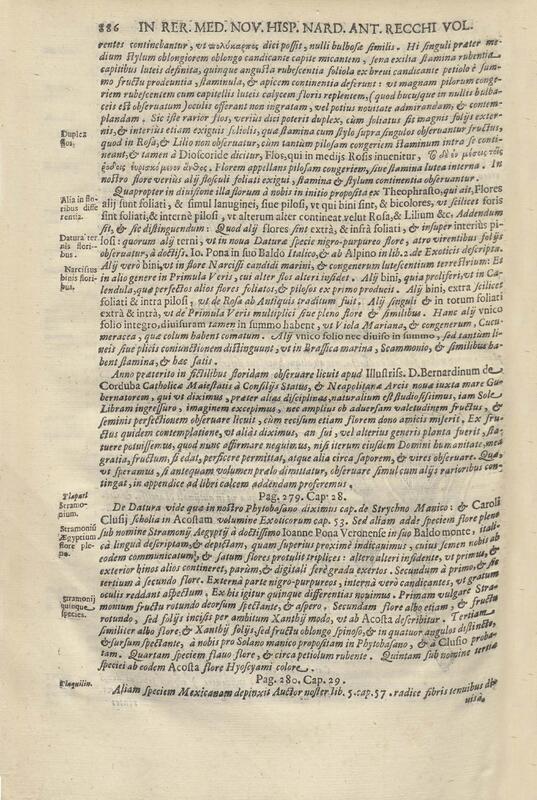 886 IN RER. MED. NOV. HISP. NARD. ANT. RECCHI VOL.
rentes continebantur, vt πολύκαρπος dici possit, nulli bulbosæ similis. Hi singuli præter me-
dium stylum oblongiorem oblongo candicante capite micantem, sena exilia stamina rubentia
capitibus luteis definita, quinque angusta rubescentia foliola ex breui candicante petiolo è sum-
mo fructu prodeuntia, & apicem continentia deferunt: vt magnam pilorum conge-
riem rubescentem cum capitellis luteis calycem floris replentem, (quod hucusque in nullis bulba-
ceis est obseruatum) oculis offerant non ingratam, vel potius nouitate admirandam, & contem-
plandam. Sic iste rarior flos, veriùs dici poterit duplex, cùm foliatus sit magnis folijs exter-
nis, & interiùs etiam exiguis foliolis, quæ stamina cum stylo supra singulos obseruantur fructus,
Duplex
flos.
quod in Rosa, & Lilio non obseruatur, cùm tantùm pilosam congeriem staminum intra se conti-
neant, & tamen à Dioscoride dicitur, Flos, qui in medijs Rosis inuenitur,
Florem appellans pilosam congeriem, siue stamina lutea interna. In
nostro flore veriùs alij flosculi foliati exigui, stamina & stylum continentia obseruantur.
Quapropter in diuisione illa florum à nobis in initio proposita ex Theophrasto, qui ait, Flores
Alia in flo-
ribus diffe
rentia.
alij sunt foliati, & simul lanuginei, siue pilosi, vt qui bini sint, & bicolores, vt scilicet foris
sint foliati, & internè pilosi, vt alterum alter contineat, velut Rosa, & Lilium &c. Addendum
sit, & sic distinguendum: Quod alij flores sint extrà, & infrà foliati, & insuper interiùs pi-
losi: quorum alij terni, vt in noua Datura specie nigro-purpureo flore, atro virentibus folijs
Datura ter
nis flori-
bus.
obseruatur, à doctiss. Io. Pona in suo Baldo Italico, & ab Alpino in lib. 2. de Exoticis descripta.
Alij verò bini, vt in flore Narcissi candidi marini, & congenerum lutescentium terrestrium: Et
Narcissus
binis flori-
bus.
in alio genere in Primula Veris, cui alter flos alteri insidet. Alij bini, quia proliferi, vt in Ca-
lendula, quæ perfectos alios flores foliatos, & pilosos ex primo producit. Alij bini, extra scilicet
foliati & intra pilosi, vt de Rosa ab Antiquis traditum fuit. Alij singuli & in totum foliati
extrà & intrà, vt de Primula Veris multiplici siue pleno flore & similibus. Hanc alij vnico
folio integro, diuisuram tamen in summo habent, vt Viola Mariana, & congenerum, Cucu-
meracea, quæ colum habent comatum. Alij vnico folio nec diuiso in summo, sed tantùm li-
neis siue plicis coniunctionem distinguunt, vt in Brassica marina, Scammonio, & similibus ha-
bent stamina, & hæc satis.
Anno præterito in fictilibus floridam obseruare licuit apud Illustriss. D. Bernardinum de
Corduba Catholicæ Maiestatis à Consilijs Status, & Neapolitanæ Arcis nouæ iuxta mare Gu-
bernatorem, qui vt diximus, præter alias disciplinas, naturalium est studiosissimus, iam Sole
Libram ingressuro, imaginem excepimus, nec amplius ob aduersam valetudinem fructus, &
seminis perfectionem obseruare licuit, cùm recisum etiam florem dono amicis miserit, Ex fru-
ctus quidem contemplatione, vt aliàs diximus, an sui, vel alterius generis planta fuerit, sta-
tuere potuissemus, quod nunc affirmare nequimus, nisi iterum eiusdem Domini humanitate, mea
gratia, fructum, si edat, perficere permittat, atque alia circa saporem, & vires obseruare. Quæ,
vt speramus, si antequam volumen prælo dimittatur, obseruare simul cum alijs rarioribus con-
tingat, in appendice ad libri calcem addendam proferemus.
Pag. 279. Cap. 28.
Tlapatl
Stramo-
nium.
De Datura vide quæ in nostro Phytobasano diximus cap. de Strychno Manico: & Caroli
Clusij scholia in Acostam volumine Exoticorum cap. 53. Sed aliam adde speciem flore pleno
Stramoniũ
Ægyptium
flore ple-
no.
sub nomine Stramonij Aegyptij à doctissimo Ioanne Pona Veronense in suo Baldo monte, itali-
ca linguâ descriptam, & depictam, quam superius proximè indicauimus, cuius semen nobis ab
eodem communicatum, & satum flores protulit triplices: altero alteri insidente, vt primus, &
exterior binos alios contineret, parùm, & digitali serè gradu exertos. Secundum à primo, & sic
tertium à secundo flore. Externa parte nigro-purpureos, internâ verò candicantes, vt gratum
oculis reddant aspectum. Ex his igitur quinque differentias nouimus. Primam vulgare Stra-
Stramonij
quinque
species.
monium fructu rotundo deorsum spectante, & aspero. Secundam flore albo etiam, & fructu
rotundo, sed folijs incisis per ambitum Xanthij modo, vt ab Acosta describitur. Tertiam
similiter albo flore, & Xanthij folijs, sed fructu oblongo spinoso, & in quatuor angulos distincto,
& sursum spectante, à nobis pro Solano manico propositam in Phytobasano, & à Clusio proba-
tam. Quartam speciem flauo flore, & circa petiolum rubente. Quintam sub nomine tertiæ
speciei ab eodem Acosta flore Hyoscyami colore.
Pag. 280. Cap. 29.
Tlaquilin.
Aliam speciem Mexicanam depinxit Auctor noster lib. 5. cap. 57. radice fibris tenuibus di-
uisâ,